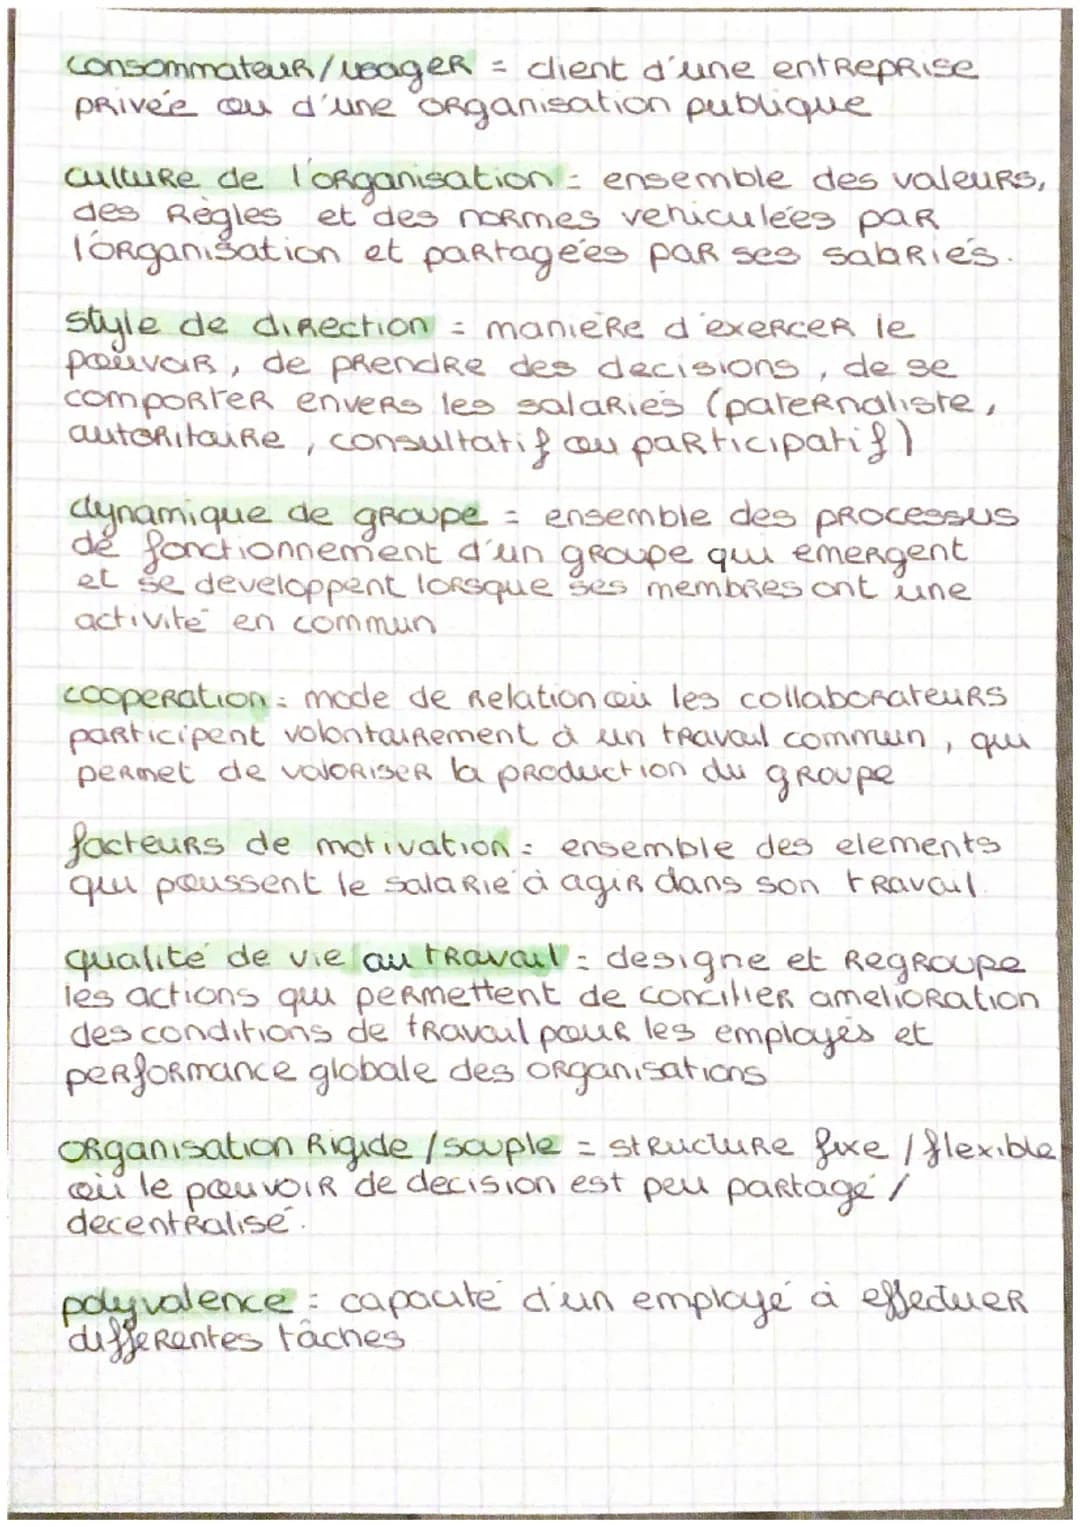 consommateur/usager = client d'une entreprise
privée ou d'une organisation publique
culture de l'organisation = ensemble des valeurs,
des règles et des normes vehiculées par
l'organisation et partagées par ses salariés.
style de direction = maniere d'exercer le
pouvoir, de prendre des decisions, de se
comporter envers les salariés (paternaliste,
autoritaire, consultatif ou participatif)
dynamique de groupe = ensemble des processus
de fonctionnement d'un groupe qui emergent
et se developpent lorsque ses membres ont une
activité en commun
cooperation = mode de relation où les collaborateurs
participent volontairement à un travail commun, qui
permet de valoriser la production du groupe
facteurs de motivation = ensemble des elements
qui poussent le salarié à agir dans son travail.
qualité de vie au travail = designe et regroupe
les actions qui permettent de concilier amelioration
des conditions de travail pour les employés et
performance globale des organisations
organisation rigide / souple = structure fixe / flexible
où le pouvoir de decision est peu partagé /
decentralisé.
polyvalence = capacité d'un employé à effectuer
differentes tâches